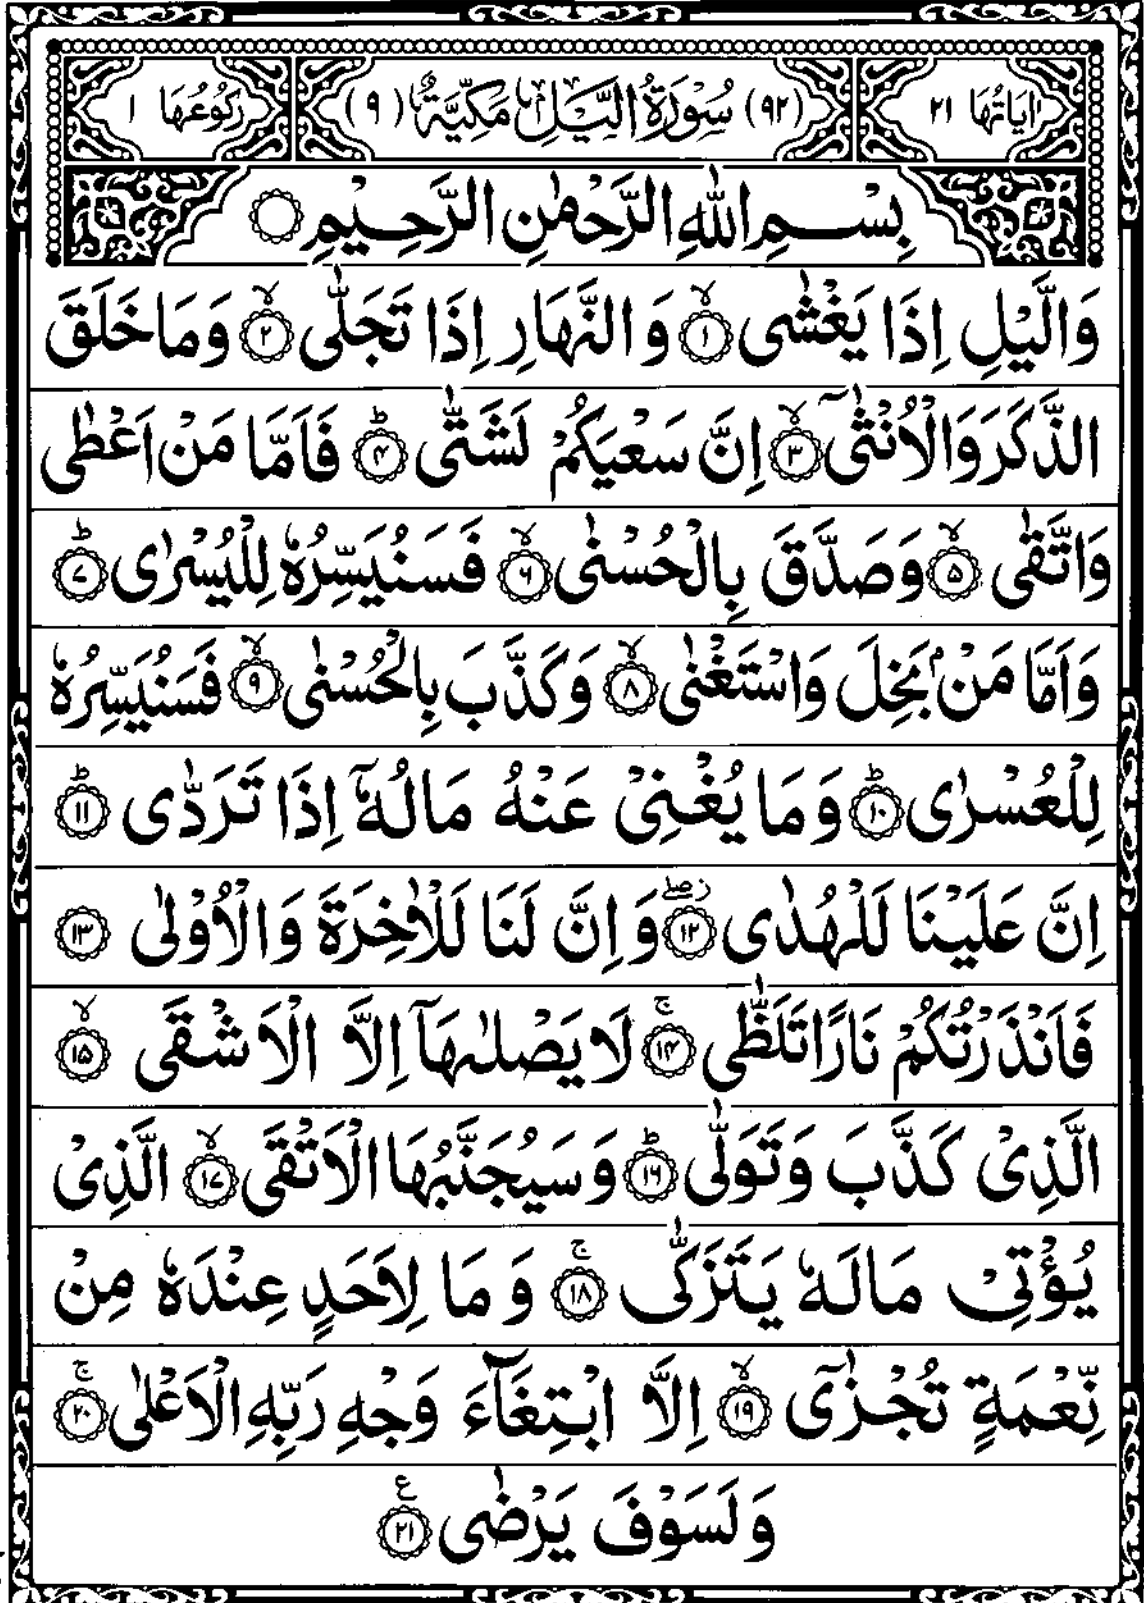 اٰيَاتُهَا ٢١ (٩٢) سُوْرَةُ الَّيْلِ مَكِّيَّةٌ (٩) رَكُوْعُهَا ١
بِسْمِ اللّٰهِ الرَّحْمٰنِ الرَّحِيْمِ
وَالَّيْلِ اِذَا يَغْشٰى ۙ﴿۱﴾ وَالنَّهَارِ اِذَا تَجَلّٰى ۙ﴿۲﴾ وَمَا خَلَقَ
الذَّكَرَ وَالْاُنْثٰۤى ۙ﴿۳﴾ اِنَّ سَعْيَكُمْ لَشَتّٰى ؕ﴿۴﴾ فَاَمَّا مَنْ اَعْطٰى
وَاتَّقٰى ۙ﴿۵﴾ وَصَدَّقَ بِالْحُسْنٰى ۙ﴿۶﴾ فَسَنُيَسِّرُهٗ لِلْيُسْرٰى ؕ﴿۷﴾
وَاَمَّا مَنْۢ بَخِلَ وَاسْتَغْنٰى ۙ﴿۸﴾ وَكَذَّبَ بِالْحُسْنٰى ۙ﴿۹﴾ فَسَنُيَسِّرُهٗ
لِلْعُسْرٰى ؕ﴿۱۰﴾ وَمَا يُغْنِيْ عَنْهُ مَالُهٗۤ اِذَا تَرَدّٰى ؕ﴿۱۱﴾
اِنَّ عَلَيْنَا لَلْهُدٰى ۖ﴿۱۲﴾ وَاِنَّ لَنَا لَلْاٰخِرَةَ وَالْاُوْلٰى ﴿۱۳﴾
فَاَنْذَرْتُكُمْ نَارًا تَلَظّٰى ۚ﴿۱۴﴾ لَا يَصْلٰىهَاۤ اِلَّا الْاَشْقَى ۙ﴿۱۵﴾
الَّذِيْ كَذَّبَ وَتَوَلّٰى ؕ﴿۱۶﴾ وَسَيُجَنَّبُهَا الْاَتْقَى ۙ﴿۱۷﴾ الَّذِيْ
يُؤْتِيْ مَالَهٗ يَتَزَكّٰى ۚ﴿۱۸﴾ وَمَا لِاَحَدٍ عِنْدَهٗ مِنْ
نِّعْمَةٍ تُجْزٰۤى ۙ﴿۱۹﴾ اِلَّا ابْتِغَآءَ وَجْهِ رَبِّهِ الْاَعْلٰى ۚ﴿۲۰﴾
وَلَسَوْفَ يَرْضٰى ﴿۲۱﴾ ع